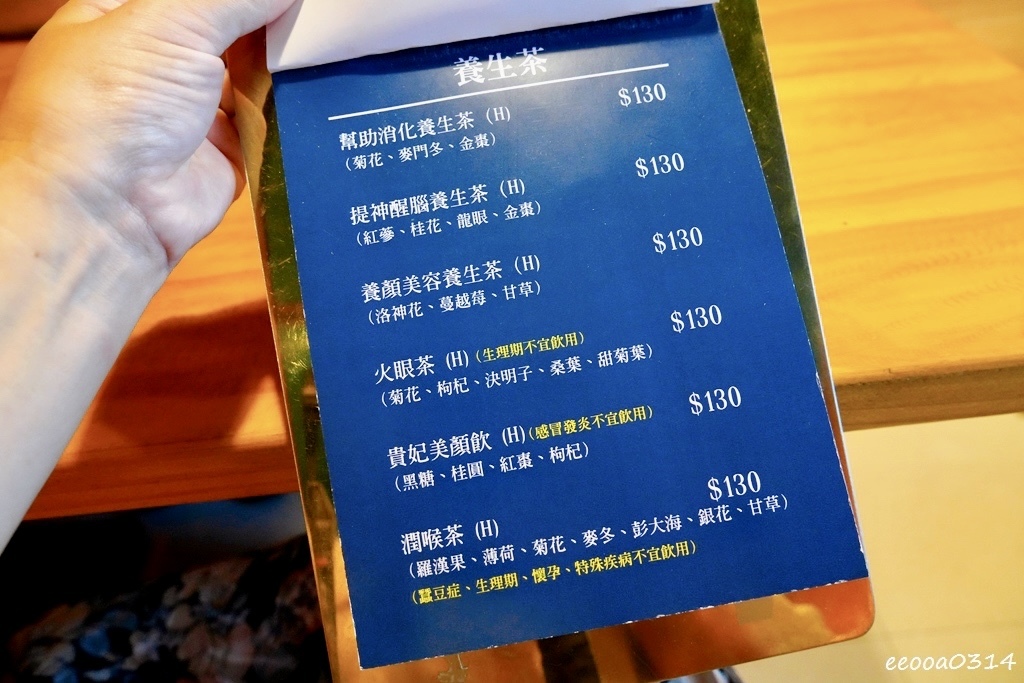 養生茶
幫助消化養生茶 (H) $130
(菊花、麥門冬、金棗)
提神醒腦養生茶 (H) $130
(紅蔘、桂花、龍眼、金棗)
養顏美容養生茶 (H) $130
(洛神花、蔓越莓、甘草)
火眼茶 (H) (生理期不宜飲用) $130
(菊花、枸杞、決明子、桑葉、甜菊葉)
貴妃美顏飲 (H) (感冒發炎不宜飲用) $130
(黑糖、桂圓、紅棗、枸杞)
潤喉茶 (H) $130
(羅漢果、薄荷、菊花、麥冬、彭大海、銀花、甘草)
(蠶豆症、生理期、懷孕、特殊疾病不宜飲用)
eeooa0314